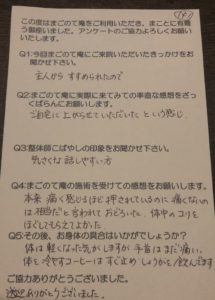 この度はまごのて庵をご利用いただき、まことに有難
う御座いました。アンケートのご協力よろしくお願い
いたします。
Q1:今回まごのて庵にご来院いただいたきっかけをお
聞かせ下さい。
主人から すすめられたので
Q2:まごのて庵に実際に来てみての率直な感想をざっ
くばらんにお願いします。
ご自宅に上がらせていただいた という感じ
Q3:整体師こばやしの印象をお聞かせ下さい。
気さくな 話しやすい方
Q4:まごのて庵の施術を受けての感想をお願いします。
本来 痛く感じるほど押されているのに痛くない
は相当だと言われて おどろいた 体中のコリを
ほぐしてもらえてよかった
Q5:その後、お身体の具合はいかがでしょうか?
体は軽くなった気がしますが 手首はまだ痛い。
体を冷やすコーヒーは すぐ止め しょうがを飲んでます
ご協力ありがとうございました。
ありがとうございました。